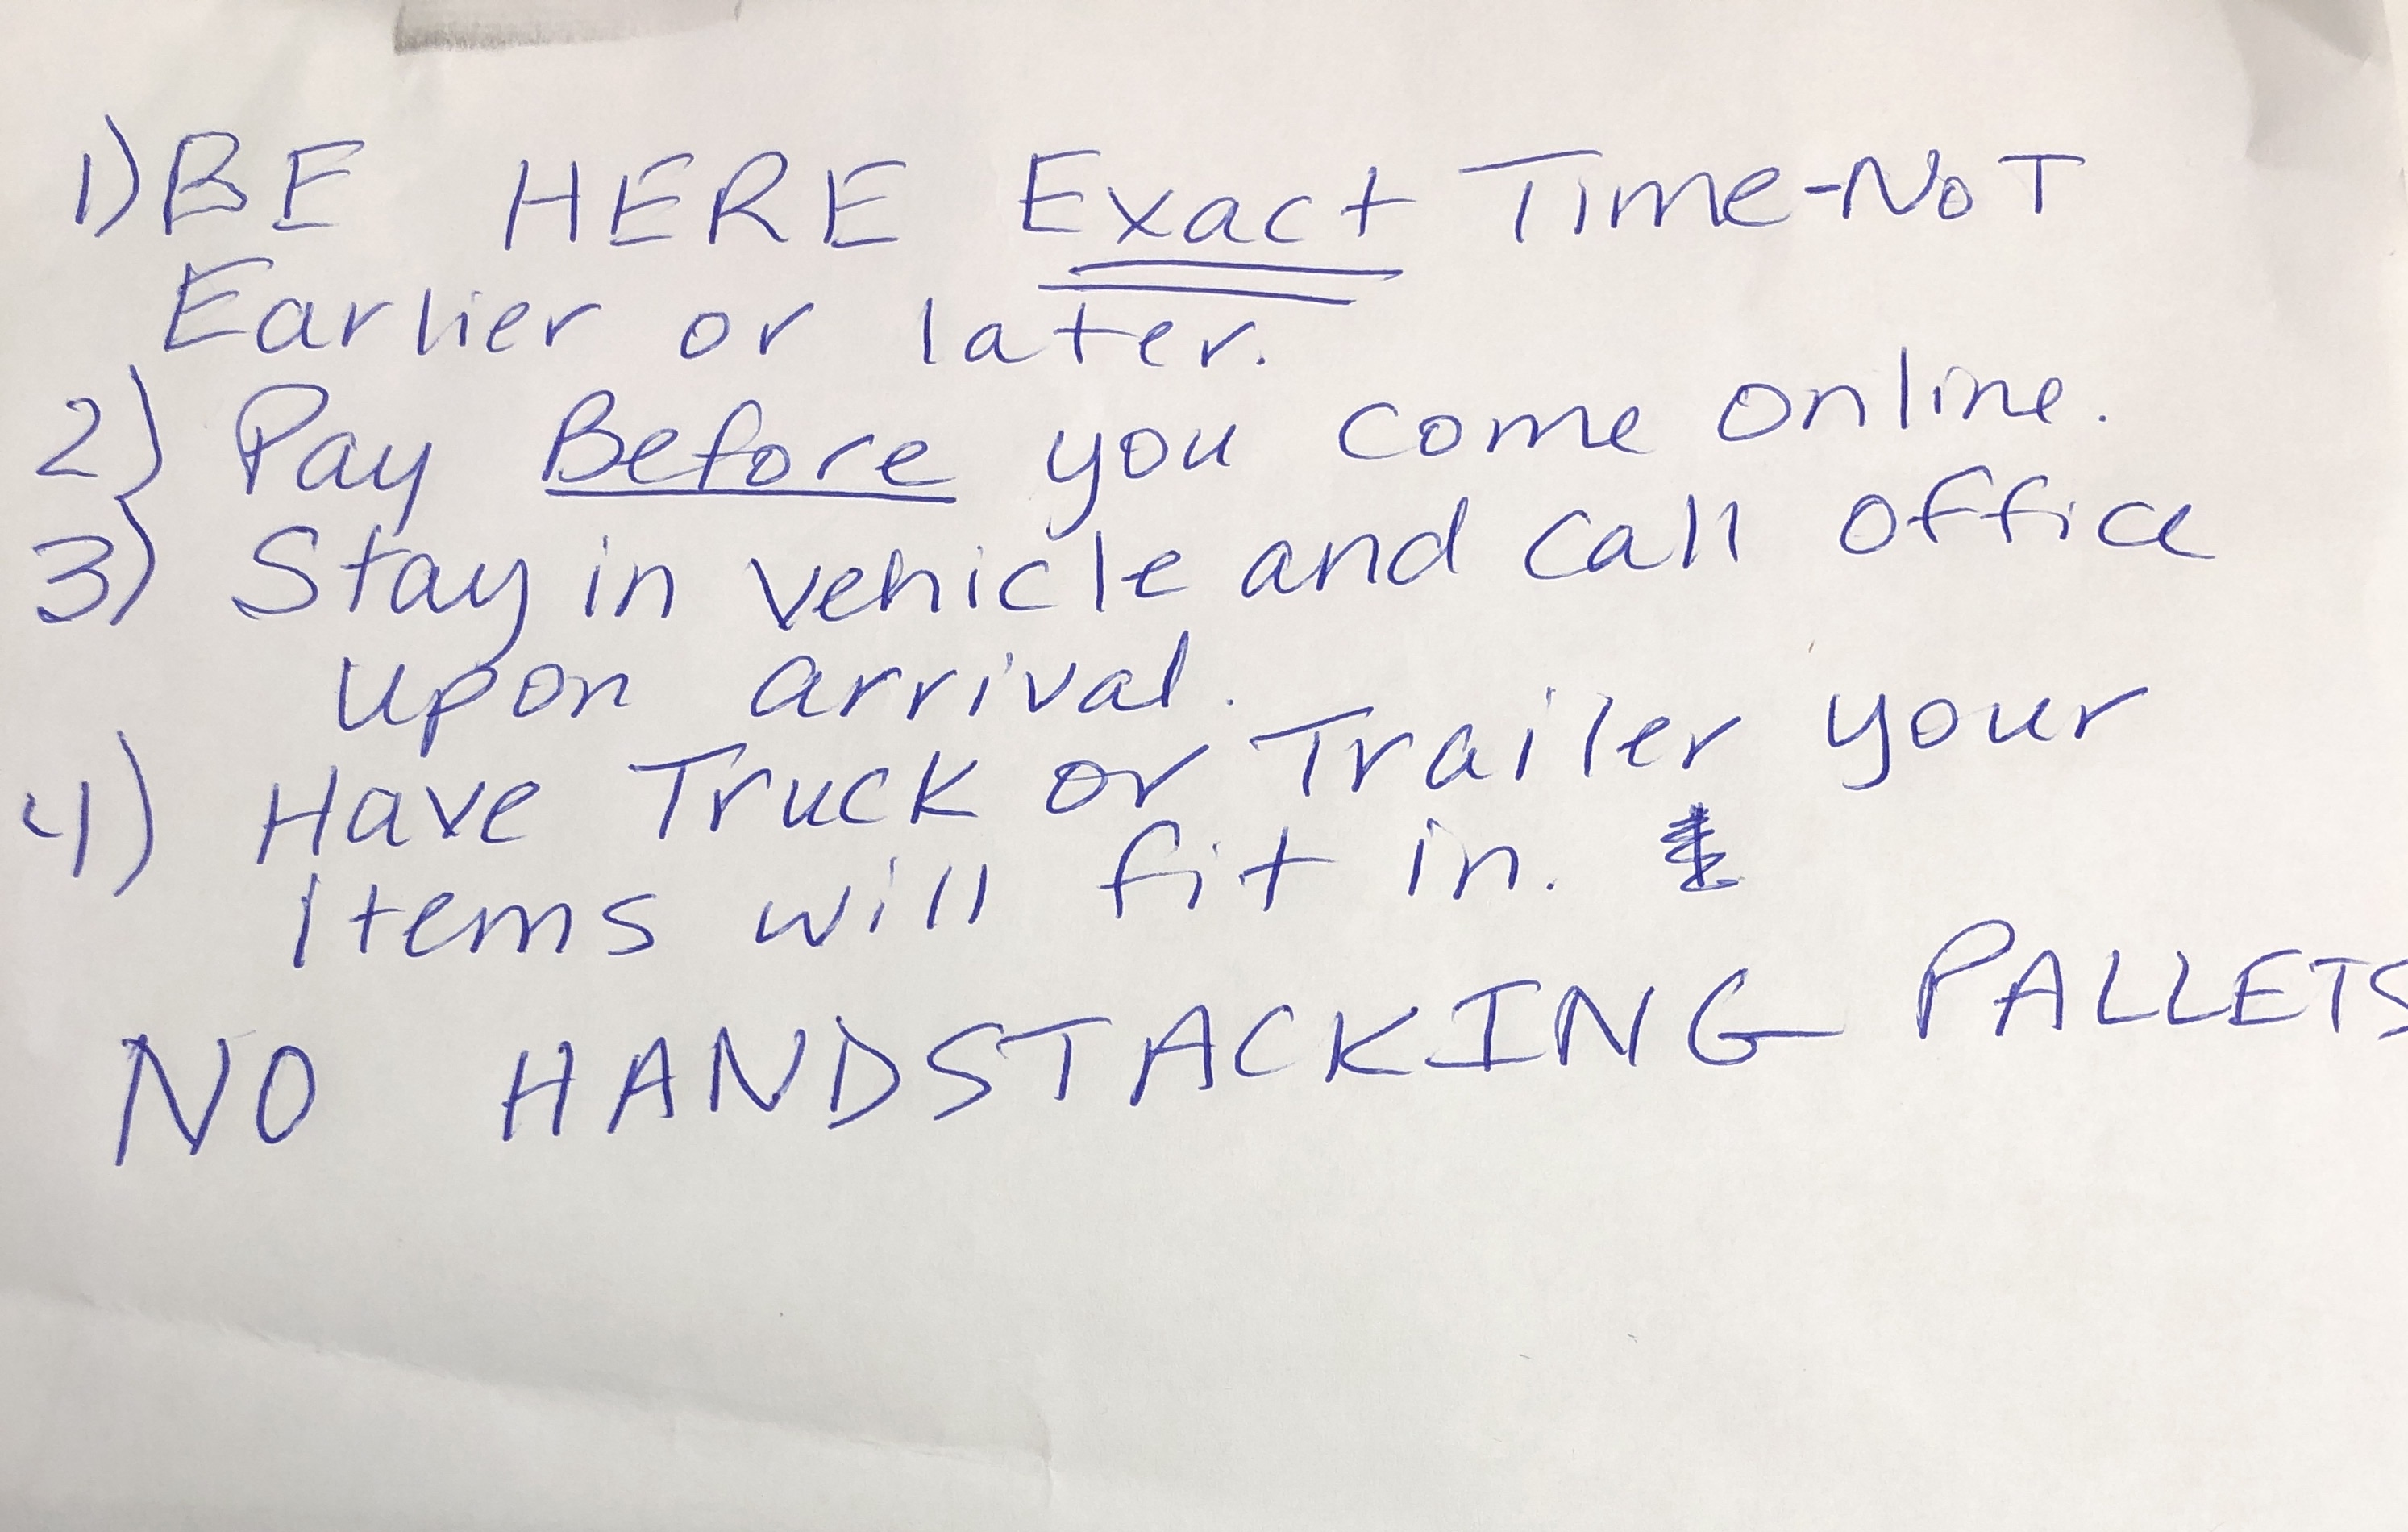 1) BE HERE Exact Time-NOT
Earlier or later.
2) Pay Before you come online.
3) Stay in vehicle and call office
upon arrival.
4) Have Truck or Trailer your
items will fit in.
NO HANDSTACKING PALLETS